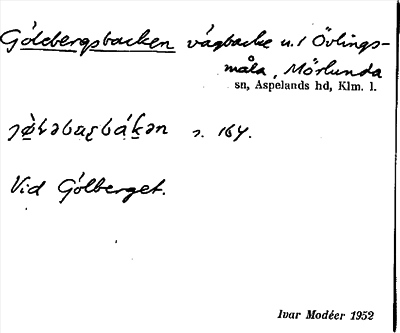 Gölebergsbacken vägbacke u. / Övlings-
måla, Mörlunda
sn, Aspelands hd, Klm. l.
s. 164.
Vid Gölberget.
Ivar Modéer 1952